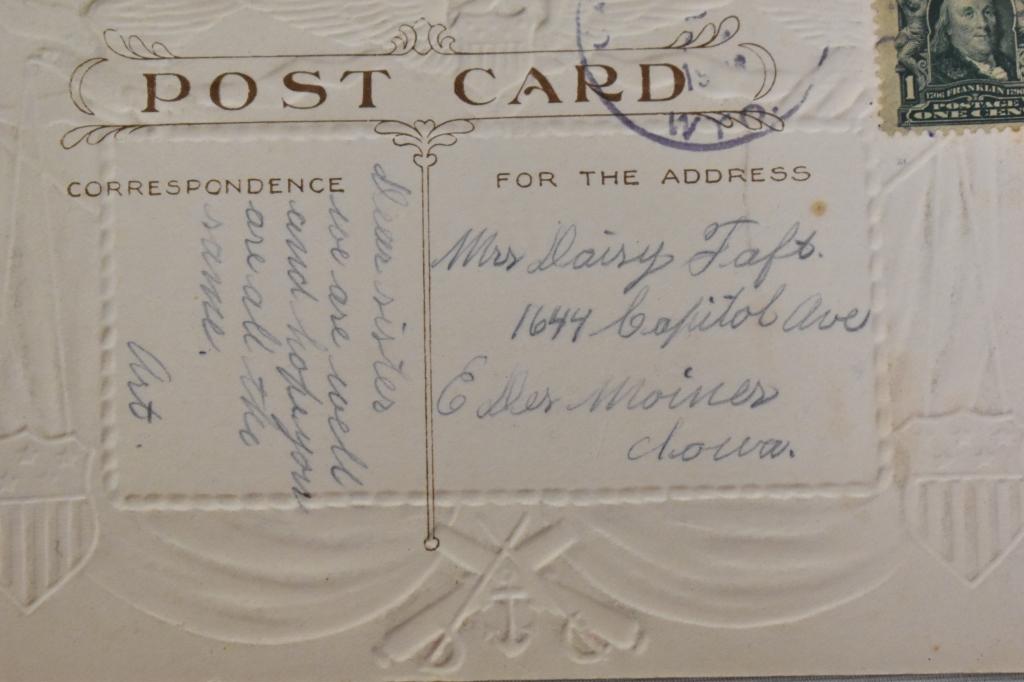 POST CARD
WYO.
1
1706 FRANKLIN 1790
POSTAGE
ONE CENT
CORRESPONDENCE
FOR THE ADDRESS
Dear sister
we are well
and hope you
are all the
same.
Art.
Mrs Daisy Taft.
1644 Capitol Ave
E Des Moines
Iowa.